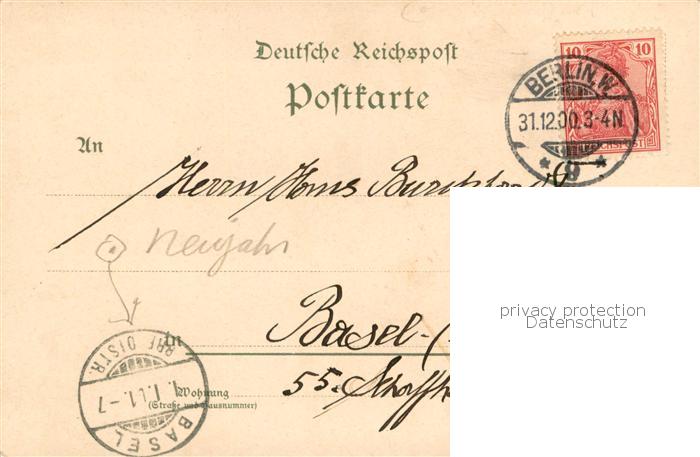 Deutsche Reichspost
Postkarte
10 10
REICHSPOST
BERLIN, W.
31.12.00.3-4N
* 9 *
An
Herrn Hans
Neujahr
privacy protection
Datenschutz
In
Basel-(
55.
Wohnung
(Straße und Hausnummer)
BRF. DISTR.
BASEL